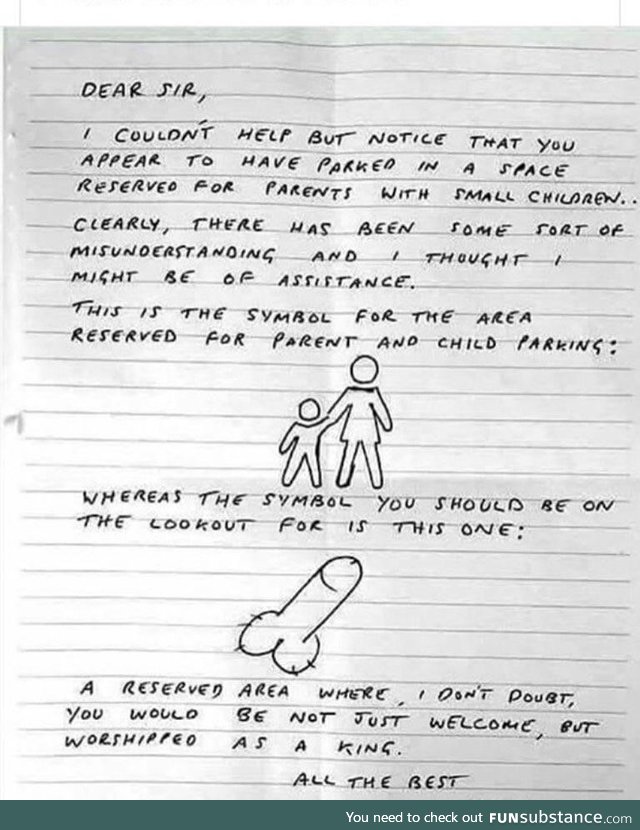 DEAR SIR,
I COULDN'T HELP BUT NOTICE THAT YOU
APPEAR TO HAVE PARKED IN A SPACE
RESERVED FOR PARENTS WITH SMALL CHILDREN..
CLEARLY, THERE HAS BEEN SOME SORT OF
MISUNDERSTANDING AND I THOUGHT I
MIGHT BE OF ASSISTANCE.
THIS IS THE SYMBOL FOR THE AREA
RESERVED FOR PARENT AND CHILD PARKING:
WHEREAS THE SYMBOL YOU SHOULD BE ON
THE LOOKOUT FOR IS THIS ONE:
A RESERVED AREA WHERE, I DON'T DOUBT,
YOU WOULD BE NOT JUST WELCOME, BUT
WORSHIPPED AS A KING.
ALL THE BEST
You need to check out FUNsubstance.com